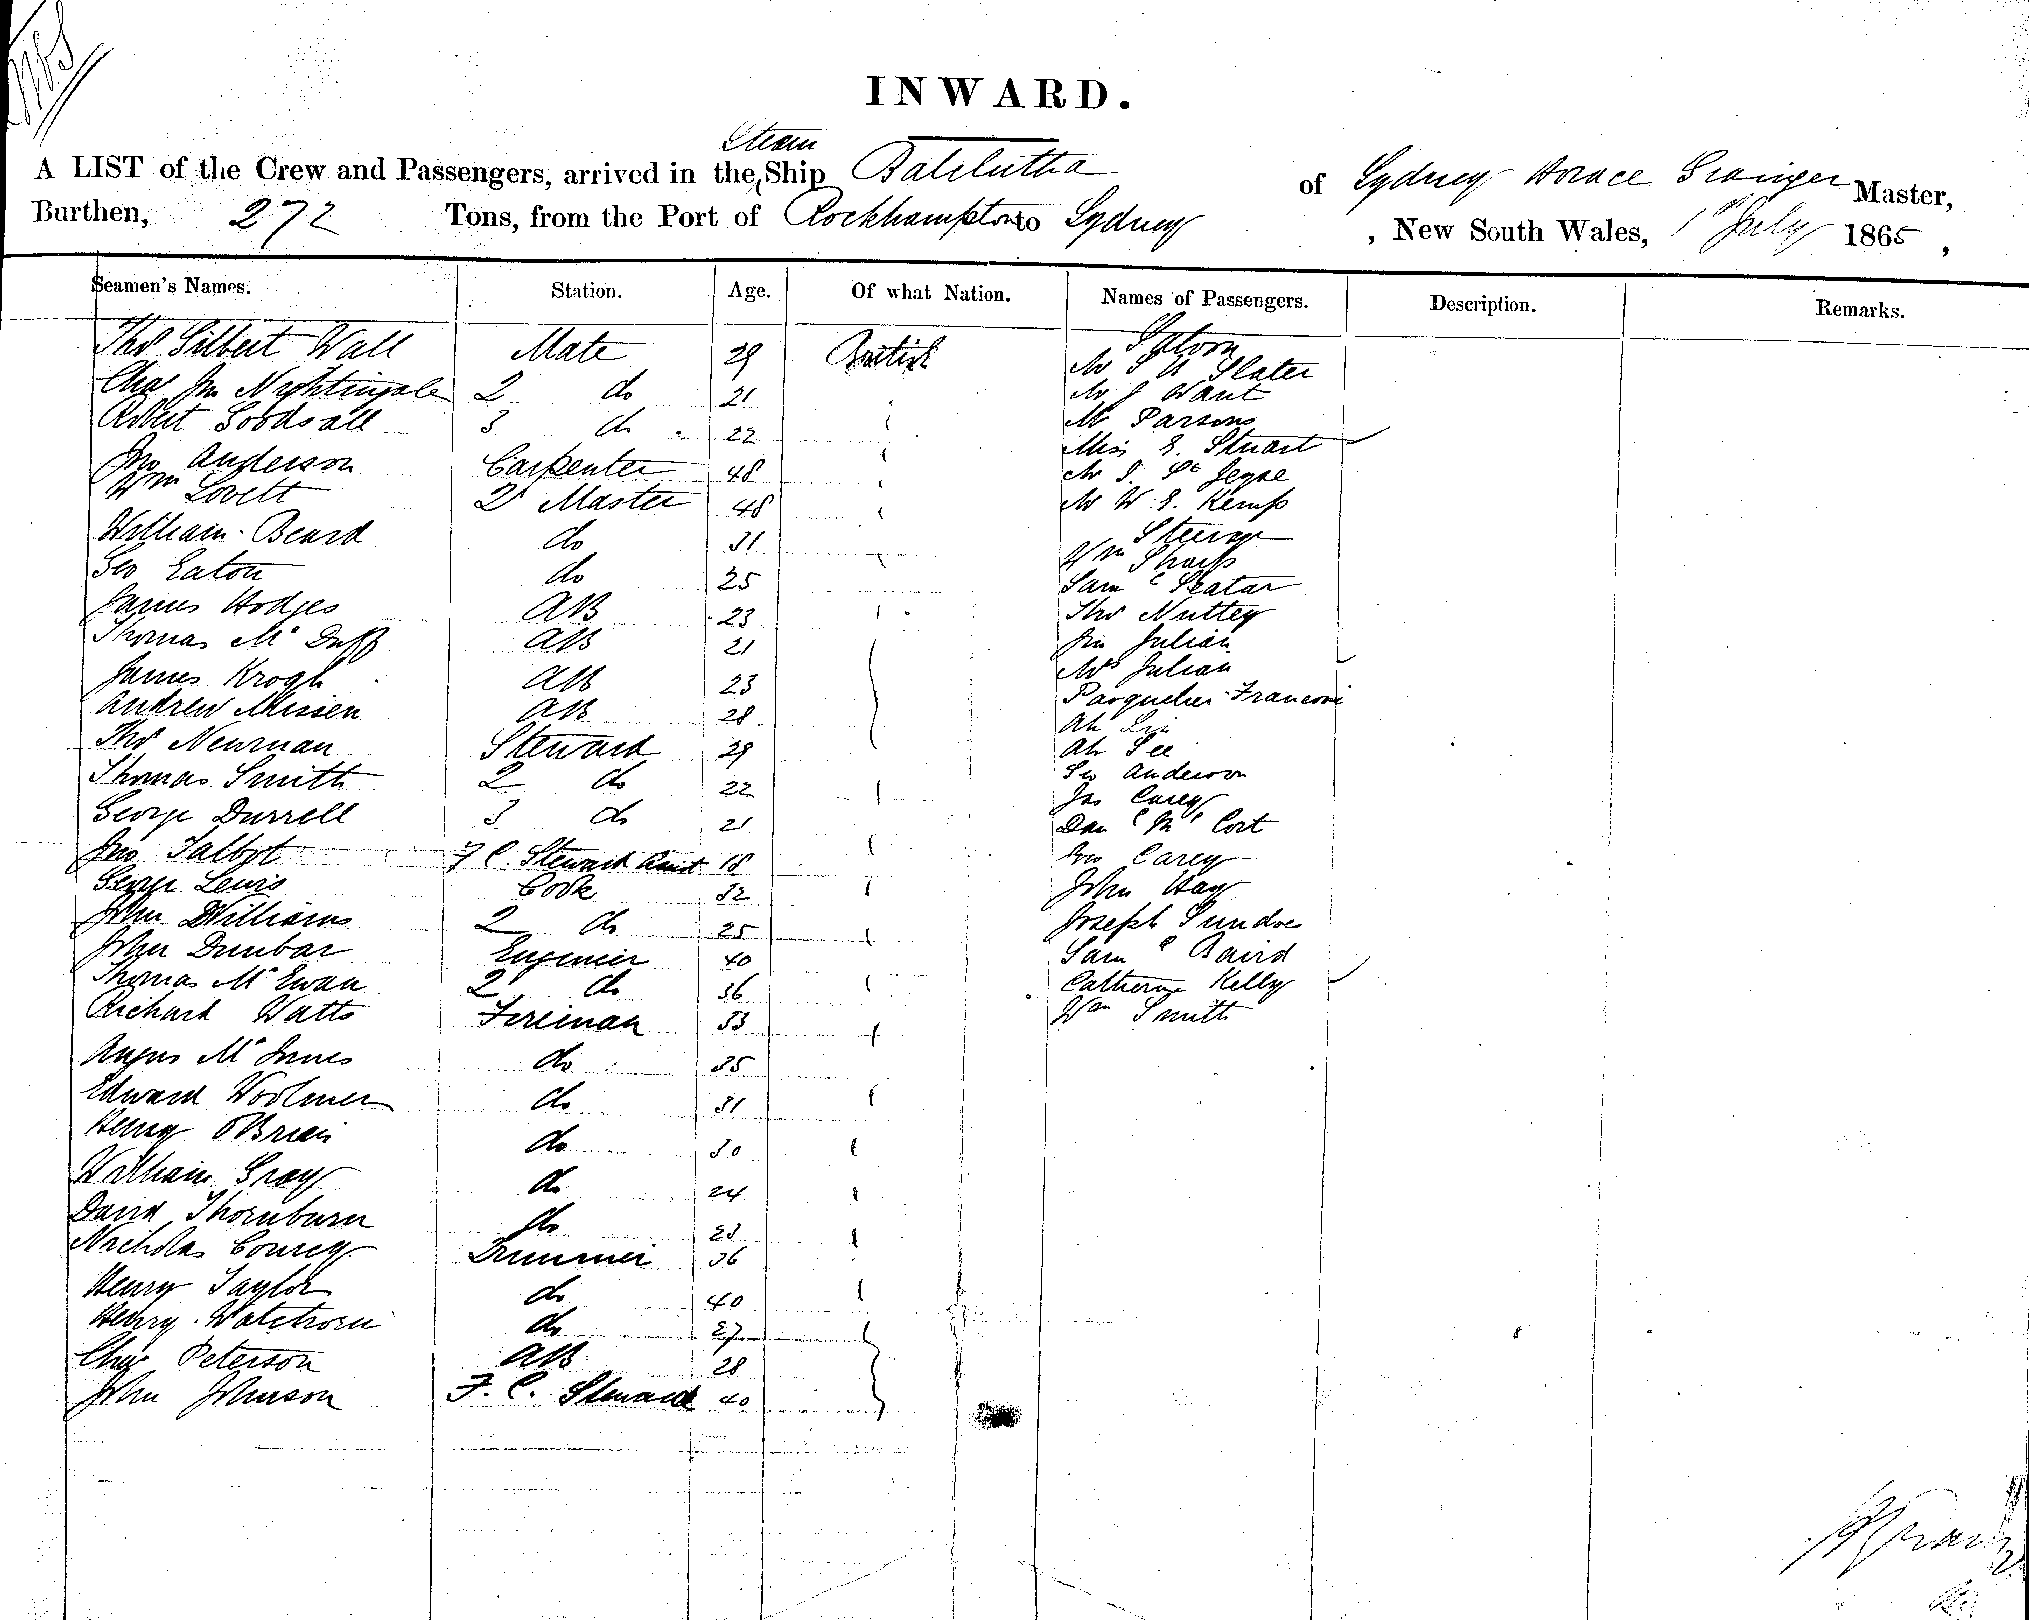 INWARD.
Steam
A LIST of the Crew and Passengers, arrived in the Ship Balclutha of Sydney Horace Grainger Master,
Burthen, 272 Tons, from the Port of Rockhampton to Sydney , New South Wales, 1st July 1865 ,
Seamen's Names. Station. Age. Of what Nation. Names of Passengers. Description. Remarks.
Thos Gilbert Wall Mate 29 British Saloon
Mr Slater
Chas Jno Nightingale 2 do 21 Mr J Want
Robert Goodsall 3 do 22 Mr Parsons
Miss E. Stuart
Jno Anderson Carpenter 48 Mr J. St Jegse
Wm Lovett 2r Master 48 Mr W. E. Kemp
William Beard do 31 Steerage
Wm Sharp
Geo Eaton do 25 Saml Seatar
James Hodges AB 23 Thos Nuttey
Thomas Mc Duff AB 21 Jno Julian
Mrs Julian
James Krogh AB 23 Pasquelier Franconi
Andrew Missen AB 28 Ah Lin
Thos Newman Steward 29 Ah See
Geo Anderson
Thomas Smith 2 do 22 Jas Carey
George Durrell 3 do 21 Danl Mc Cort
Jno Talbot F C. Steward Assist 18 Geo Carey
George Lewis Cook 32 John Hay
John Williams 2 do 25 Joseph
John Dunbar Engineer 40 Saml Baird
Thomas McEwan 2 do 36 Catherine Kelly
Richard Watts Fireman 33 Wm Smith
Angus McInnes do 35
Edward Woolmer do 31
Henry O'Brien do 30
William Gray do 24
David Thornburn do 23
Nicholas Courcy Trimmer 36
Henry Taylor do 40
Henry Watchorn do 27
Chas Peterson AB 28
John Johnson F. C. Steward 40